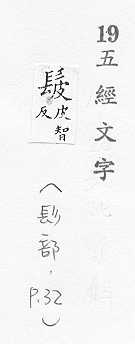 19五經文字
髲
皮智
反
(髟部，P.32)